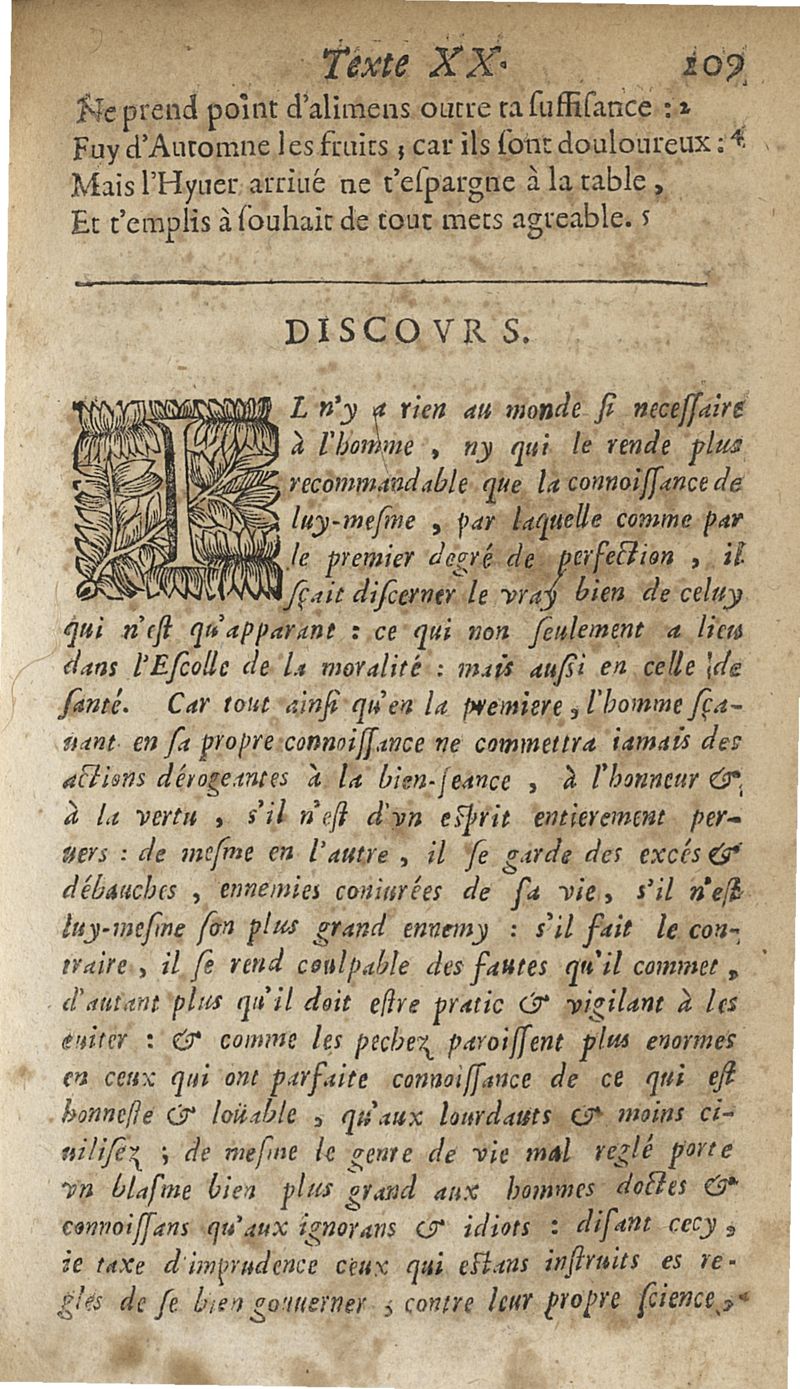 Texte XX. 109
Ne prend point d'alimens outre ta ſuffiſance : 2
Fuy d'Automne les fruits ; car ils ſont douloureux : 4
Mais l'Hyuer arriué ne t'eſpargne à la table ,
Et t'emplis à ſouhait de tout mets agreable. 5
DISCOVRS.
IL n'y a rien au monde ſi neceſſaire
à l'homme , ny qui le rende plus
recommandable que la connoiſſance de
luy-meſme , par laquelle comme par
le premier degré de perfection , il
ſçait diſcerner le vray bien de celuy
qui n'eſt qu'apparant : ce qui non ſeulement a lieu
dans l'Eſcolle de la moralité : mais auſſi en celle de
ſanté. Car tout ainſi qu'en la premiere , l'homme ſça-
uant en ſa propre connoiſſance ne commettra iamais des
actions dérogeantes à la bien-ſeance , à l'honneur &
à la vertu , s'il n'eſt d'vn eſprit entierement per-
uers : de meſme en l'autre , il ſe garde des excés &
débauches , ennemies coniurées de ſa vie , s'il n'eſt
luy-meſme ſon plus grand ennemy : s'il fait le con-
traire , il ſe rend coulpable des fautes qu'il commet ,
d'autant plus qu'il doit eſtre pratic & vigilant à les
euiter : & comme les pechez paroiſſent plus enormes
en ceux qui ont parfaite connoiſſance de ce qui eſt
honneſte & loüable , qu'aux lourdauts & moins ci-
uiliſez ; de meſme le genre de vie mal reglé porte
vn blaſme bien plus grand aux hommes doctes &
connoiſſans qu'aux ignorans & idiots : diſant cecy ,
ie taxe d'imprudence ceux qui eſtans inſtruits es re-
gles de ſe bien gouuerner , contre leur propre ſcience ,